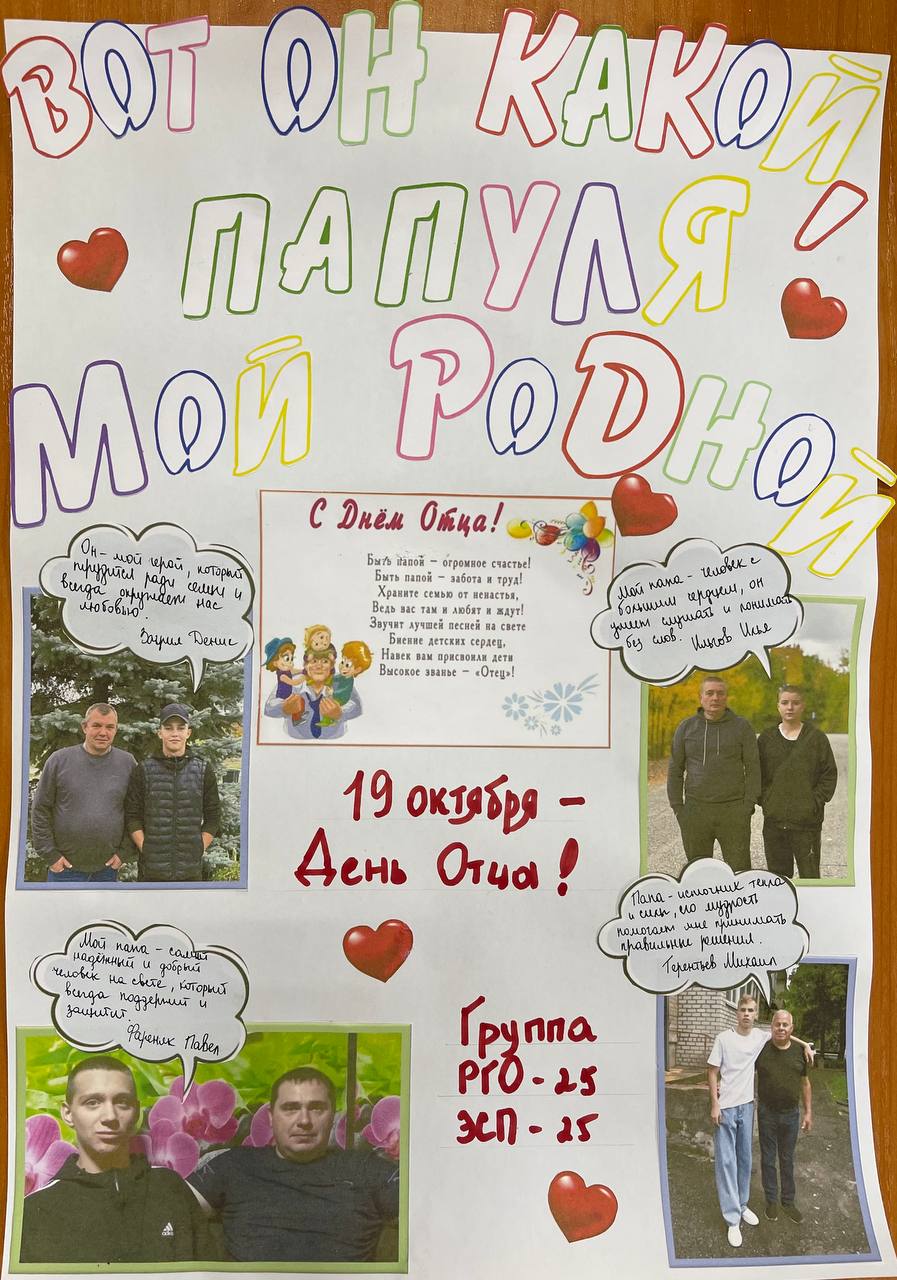 ВОТ ОН КАКОЙ
ПАПУЛЯ!
МОЙ РОДНОЙ
С Днём Отца!
Быть папой – огромное счастье!
Быть папой – забота и труд!
Храните семью от ненастья,
Ведь вас там и любят и ждут!
Звучит лучшей песней на свете
Биение детских сердец,
Навек вам присвоили дети
Высокое званье – «Отец»!
Он – мой герой, который
трудится ради семьи и
всегда окружает нас
любовью.
Денис
Мой папа – человек с
большим сердцем, он
умеет слушать и понимать
без слов. Илья
19 октября –
День Отца!
Мой папа – самый
надёжный и добрый
человек на свете, который
всегда поддержит и
защитит.
Фареник Павел
Папа – источник тепла
и силы, его мудрость
помогает мне принимать
правильные решения.
Терентьев Михаил
Группа
РГО - 25
ЭСП - 25
adidas